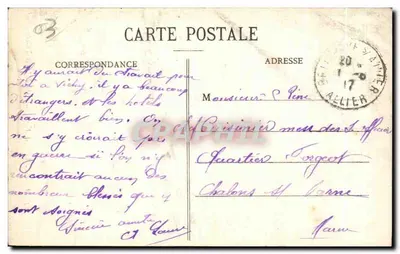 03
CARTE POSTALE
CORRESPONDANCE
ADRESSE
Il y aurait du travail pour
toi a Vichy, il y a beaucoup
d'Etrangers, et les hotels
travaillent bien. On
ne s'y croirait pas
en guerre si l'on n'y
rencontrait aucun des
nombreux blessés que y
sont soignés
Sincère amitié
Monsieur Réné
Cuisinier mess des S/
Quartier Forgeot
Chalons s/ Marne
Marne
20
17
ALLIER